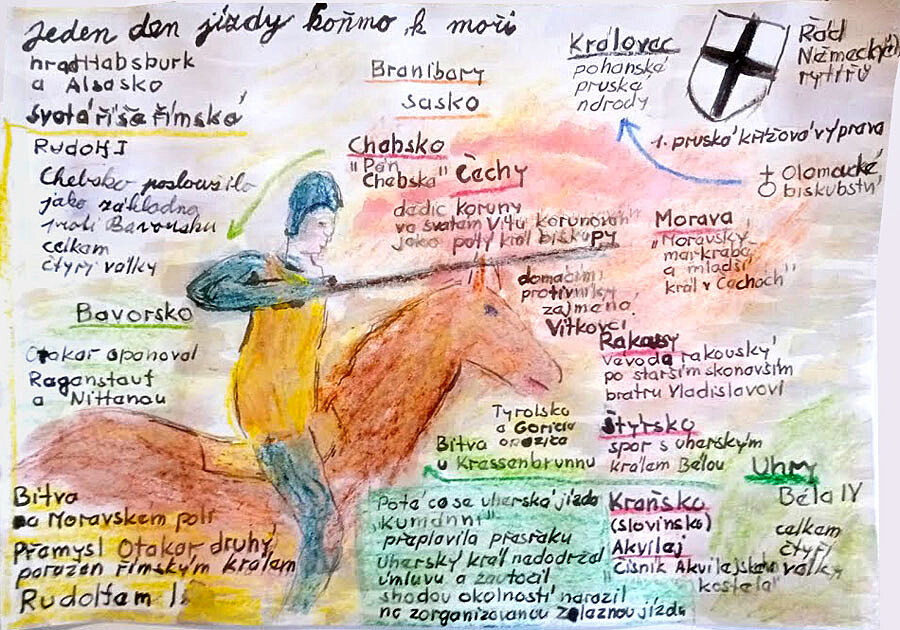 Jeden den jízdy koňmo k moři
hrad Habsburk
a Alsasko
Svatá říše římská
Rudolf I
Chebsko posloužilo
jako základna
proti Bavorsku
celkem
čtyři války
Bavorsko
Otakar opanoval
Raganstauf
a Nittanou
Bitva
na Moravském poli
Přemysl Otakar druhý
poražen římským králem
Rudolfem I.
Branibory
Sasko
Chebsko
"Pán
Chebska"
Čechy
dědic koruny
ve svatém Vítu korunován
jako pátý král biskupy
domácími
protivníky
zejména
Vítkovci
Královec
pohanské
pruské
národy
Řád
Německých
rytířů
1. pruská křížová výprava
Olomoucké
biskubství
Morava
"Moravský
markrabě
a mladší
král v Čechoch"
Rakousy
vévoda rakouský
po starším skonovším
bratru Vladislavovi
Tyrolsko
a Goricie
Štyrsko
spor s uherským
králem Bélou
Bitva
u Kressenbrunnu
Uhry
Béla IV
celkem
čtyři
války
Poté co se uherská jízda
"Kumánni"
přeplavila přesráku
uherský král nedodržel
úmluvu a zaútočil
shodou okolností narazil
na zorganizovanou železnou jízdu
Kraňsko
(Slovinsko)
Akvilej
"Číšník Akvilejského
kostela"